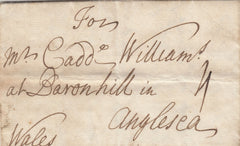 For
Mr Cadd: Williams
at Baronhill in
Anglesea
Wales